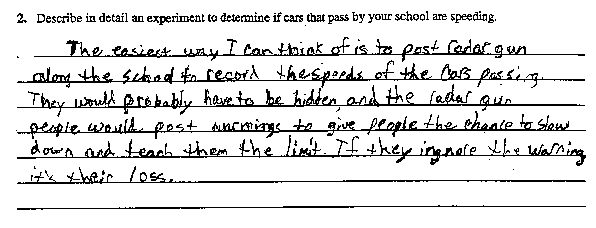 2. Describe in detail an experiment to determine if cars that pass by your school are speeding.
The easiest way I can think of is to post radar gun
along the school to record the speeds of the cars passing.
They would probably have to be hidden, and the radar gun
people would post warnings to give people the chance to slow
down and teach them the limit. If they ingnore the warning
it's their loss.